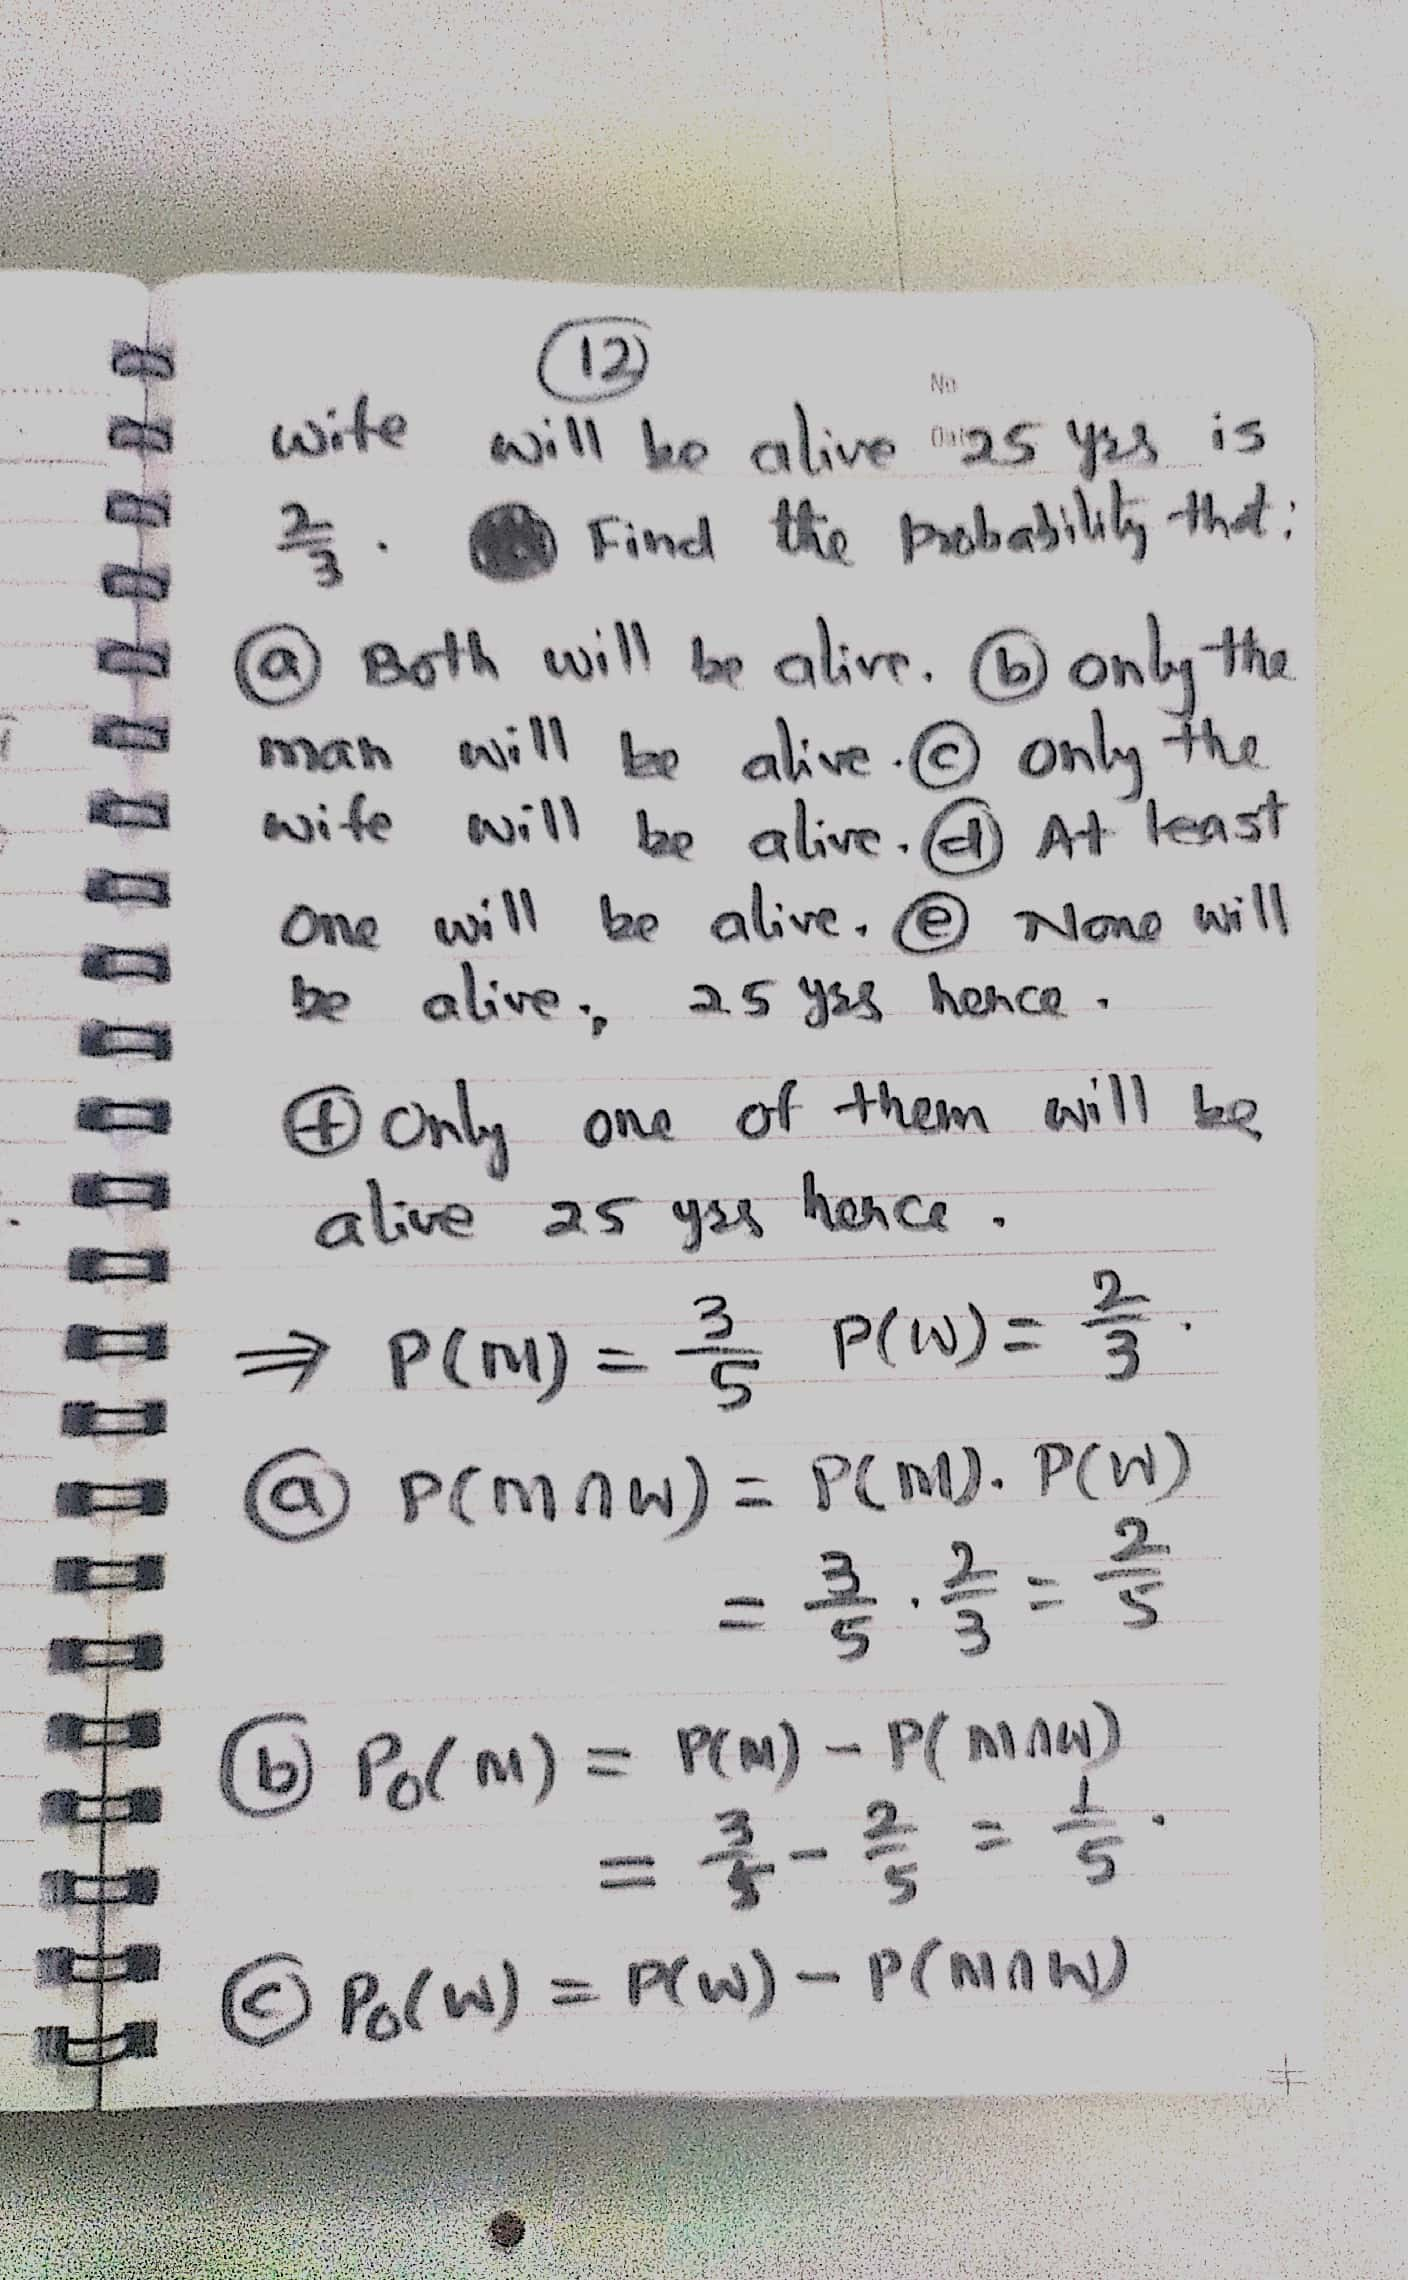 12
No
wife will be alive 25 yrs is
2/3. Find the Probability that:
ⓐ Both will be alive. ⓑ only the
man will be alive. ⓒ only the
wife will be alive. ⓓ At least
one will be alive. ⓔ None will
be alive, 25 yrs hence.
ⓕ Only one of them will be
alive 25 yrs hence.
⇒ P(M) = 3/5 P(W) = 2/3.
ⓐ P(M∩W) = P(M). P(W)
= 3/5 . 2/3 = 2/5
ⓑ Po(M) = P(M) - P(M∩W)
= 3/5 - 2/5 = 1/5.
ⓒ Po(W) = P(W) - P(M∩W)